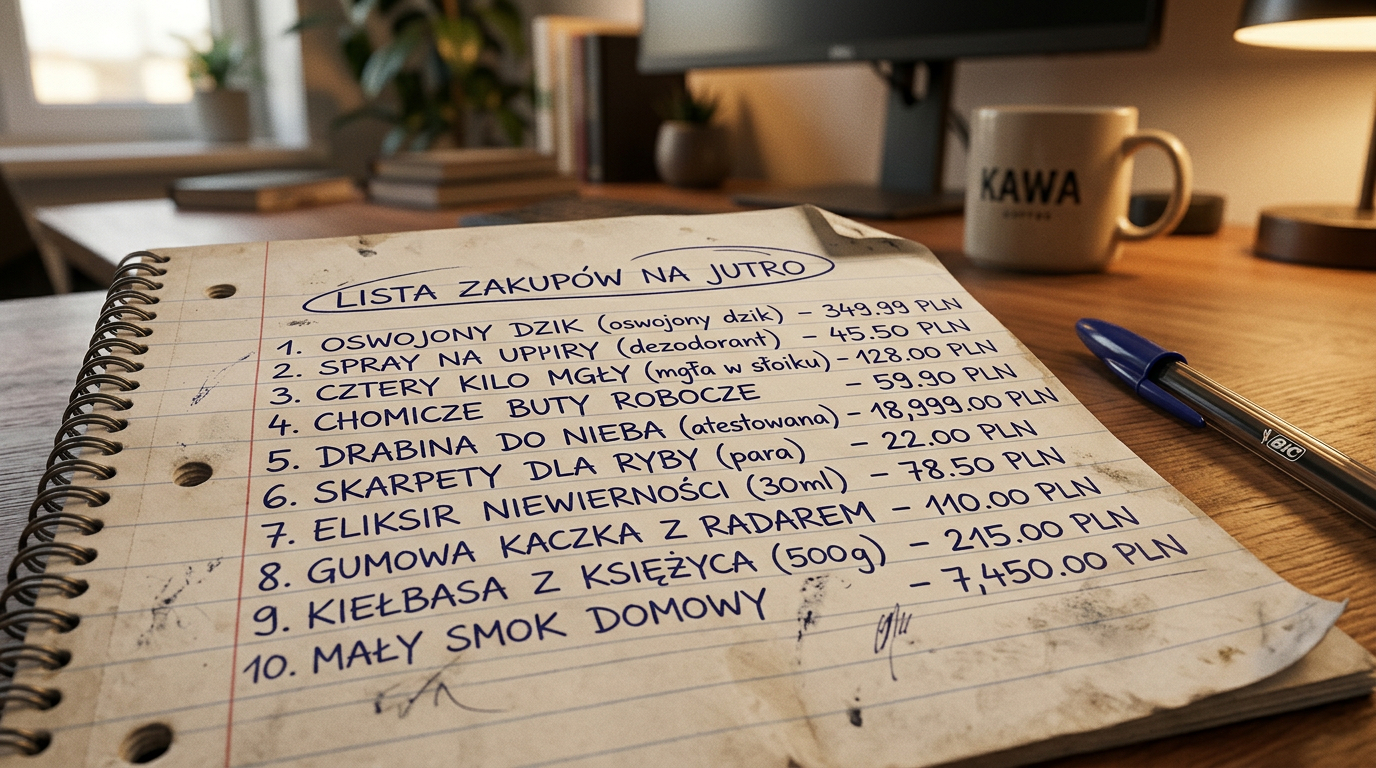 LISTA ZAKUPÓW NA JUTRO
1. OSWOJONY DZIK (oswojony dzik) – 349.99 PLN
2. SPRAY NA UPIRY (dezodorant) – 45.50 PLN
3. CZTERY KILO MGŁY (mgła w słoiku) – 128.00 PLN
4. CHOMICZE BUTY ROBOCZE – 59.90 PLN
5. DRABINA DO NIEBA (atestowana) – 18,999.00 PLN
6. SKARPETY DLA RYBY (para) – 22.00 PLN
7. ELIKSIR NIEWIERNOŚCI (30ml) – 78.50 PLN
8. GUMOWA KACZKA Z RADAREM – 110.00 PLN
9. KIEŁBASA Z KSIĘŻYCA (500g) – 215.00 PLN
10. MAŁY SMOK DOMOWY – 7,450.00 PLN
KAWA
COFFEE
BIC